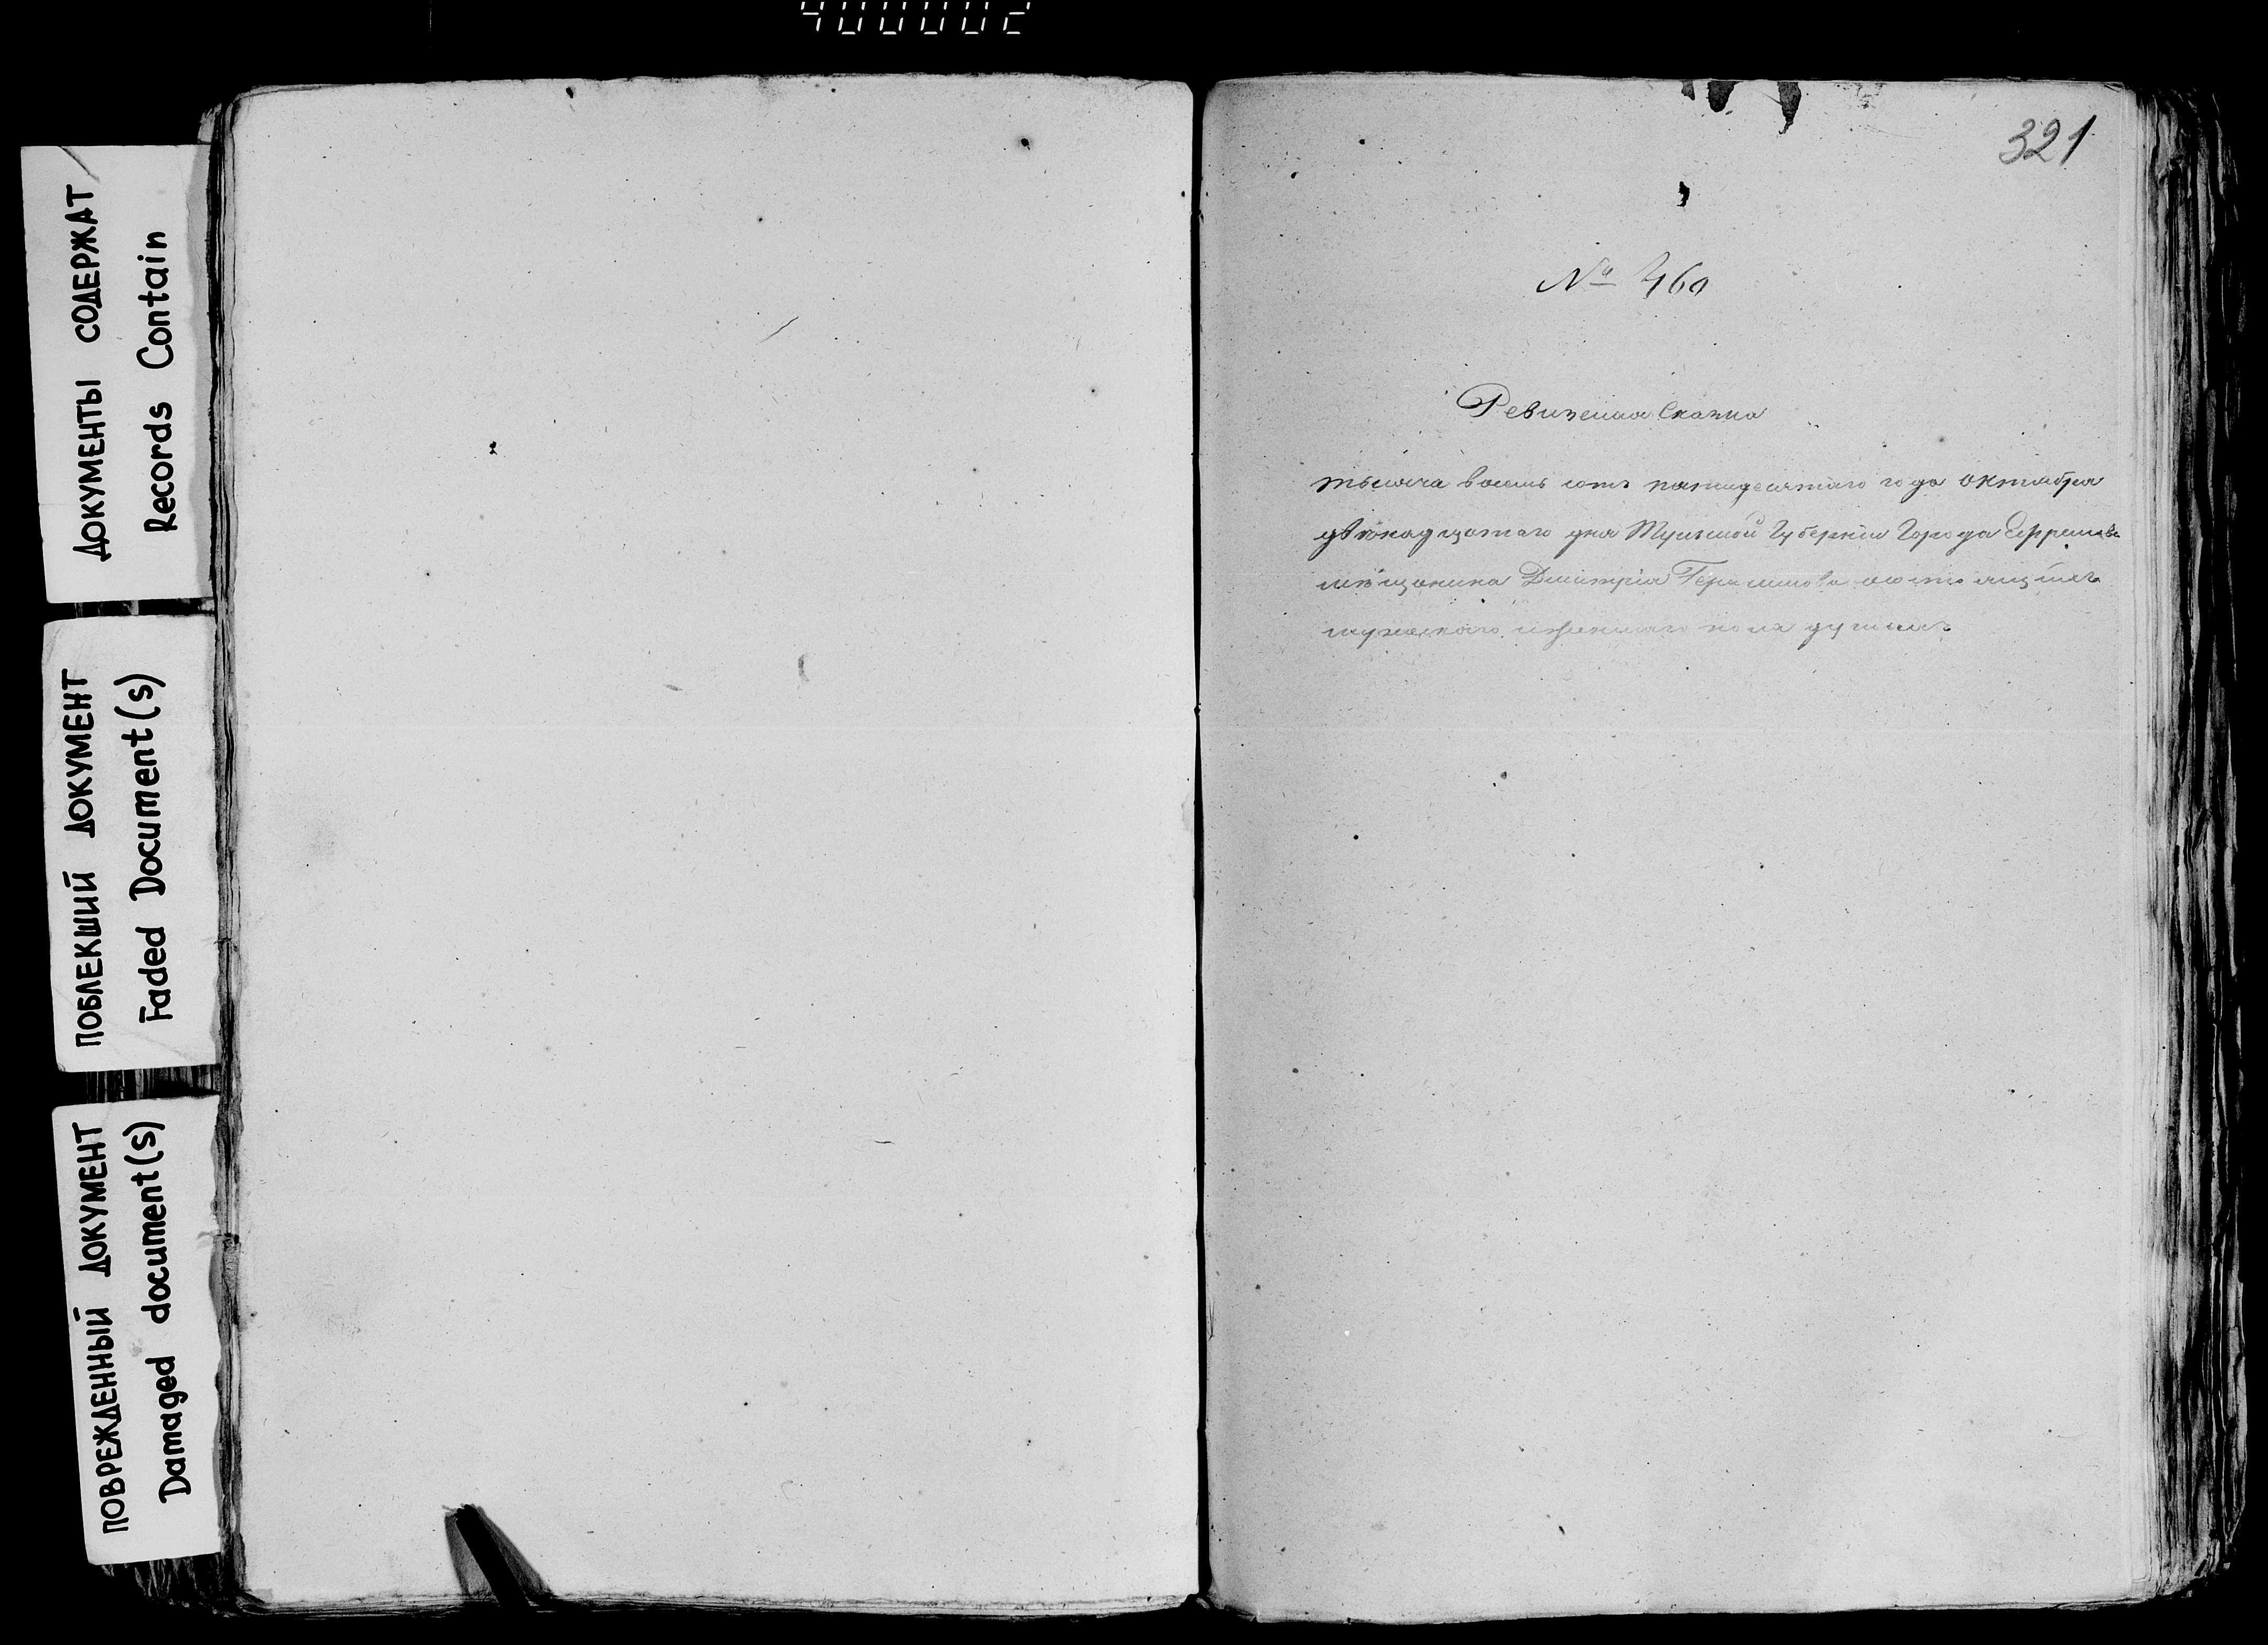 ДОКУМЕНТЫ СОДЕРЖАТ
Records Contain
ПОБЛЕКШИЙ ДОКУМЕНТ
Faded Document(s)
ПОВРЕЖДЕННЫЙ ДОКУМЕНТ
Damaged document(s)
321
№ 460
Ревизская Сказка
тысяча восемь сотъ пятидесятаго года октября
двѣнадцатаго дня Тульской Губерніи Города Ефремова
мѣщанина Дмитрія Герасимова о состоящихъ
мужескаго и женскаго пола душахъ